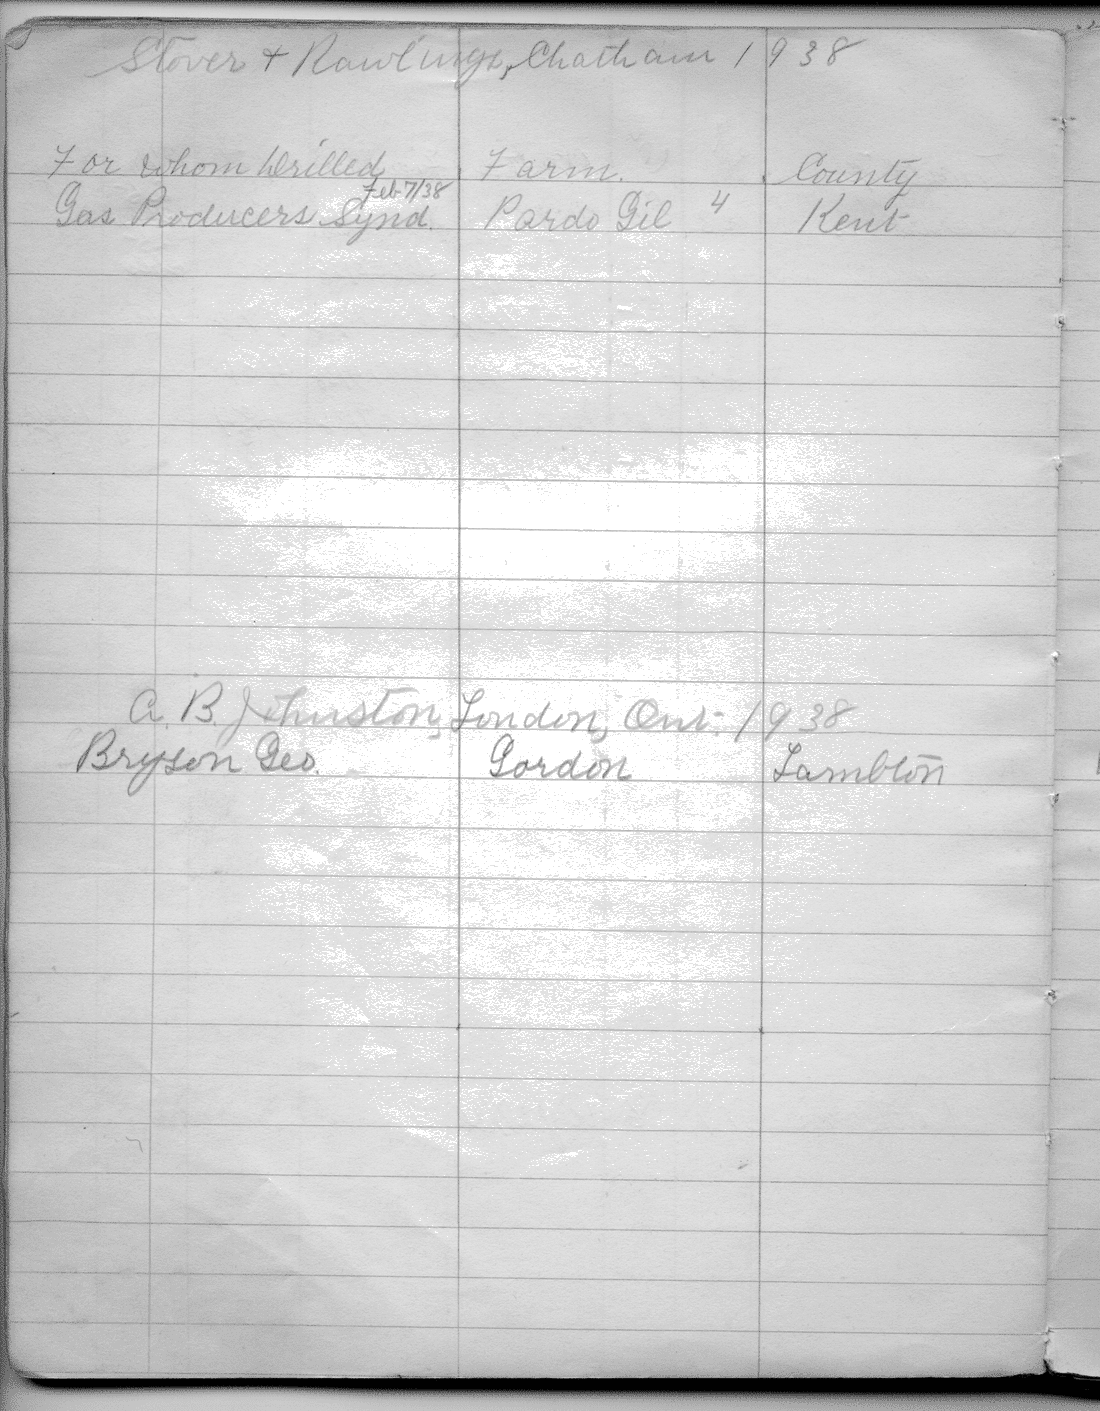 Stover & Rawlings, Chatham 1938
For whom Drilled Farm. County
Feb 7/38
Gas Producers Synd. Pardo Gil 4 Kent
A. B. Johnston, London, Ont. 1938
Bryson Geo. Gordon Lambton